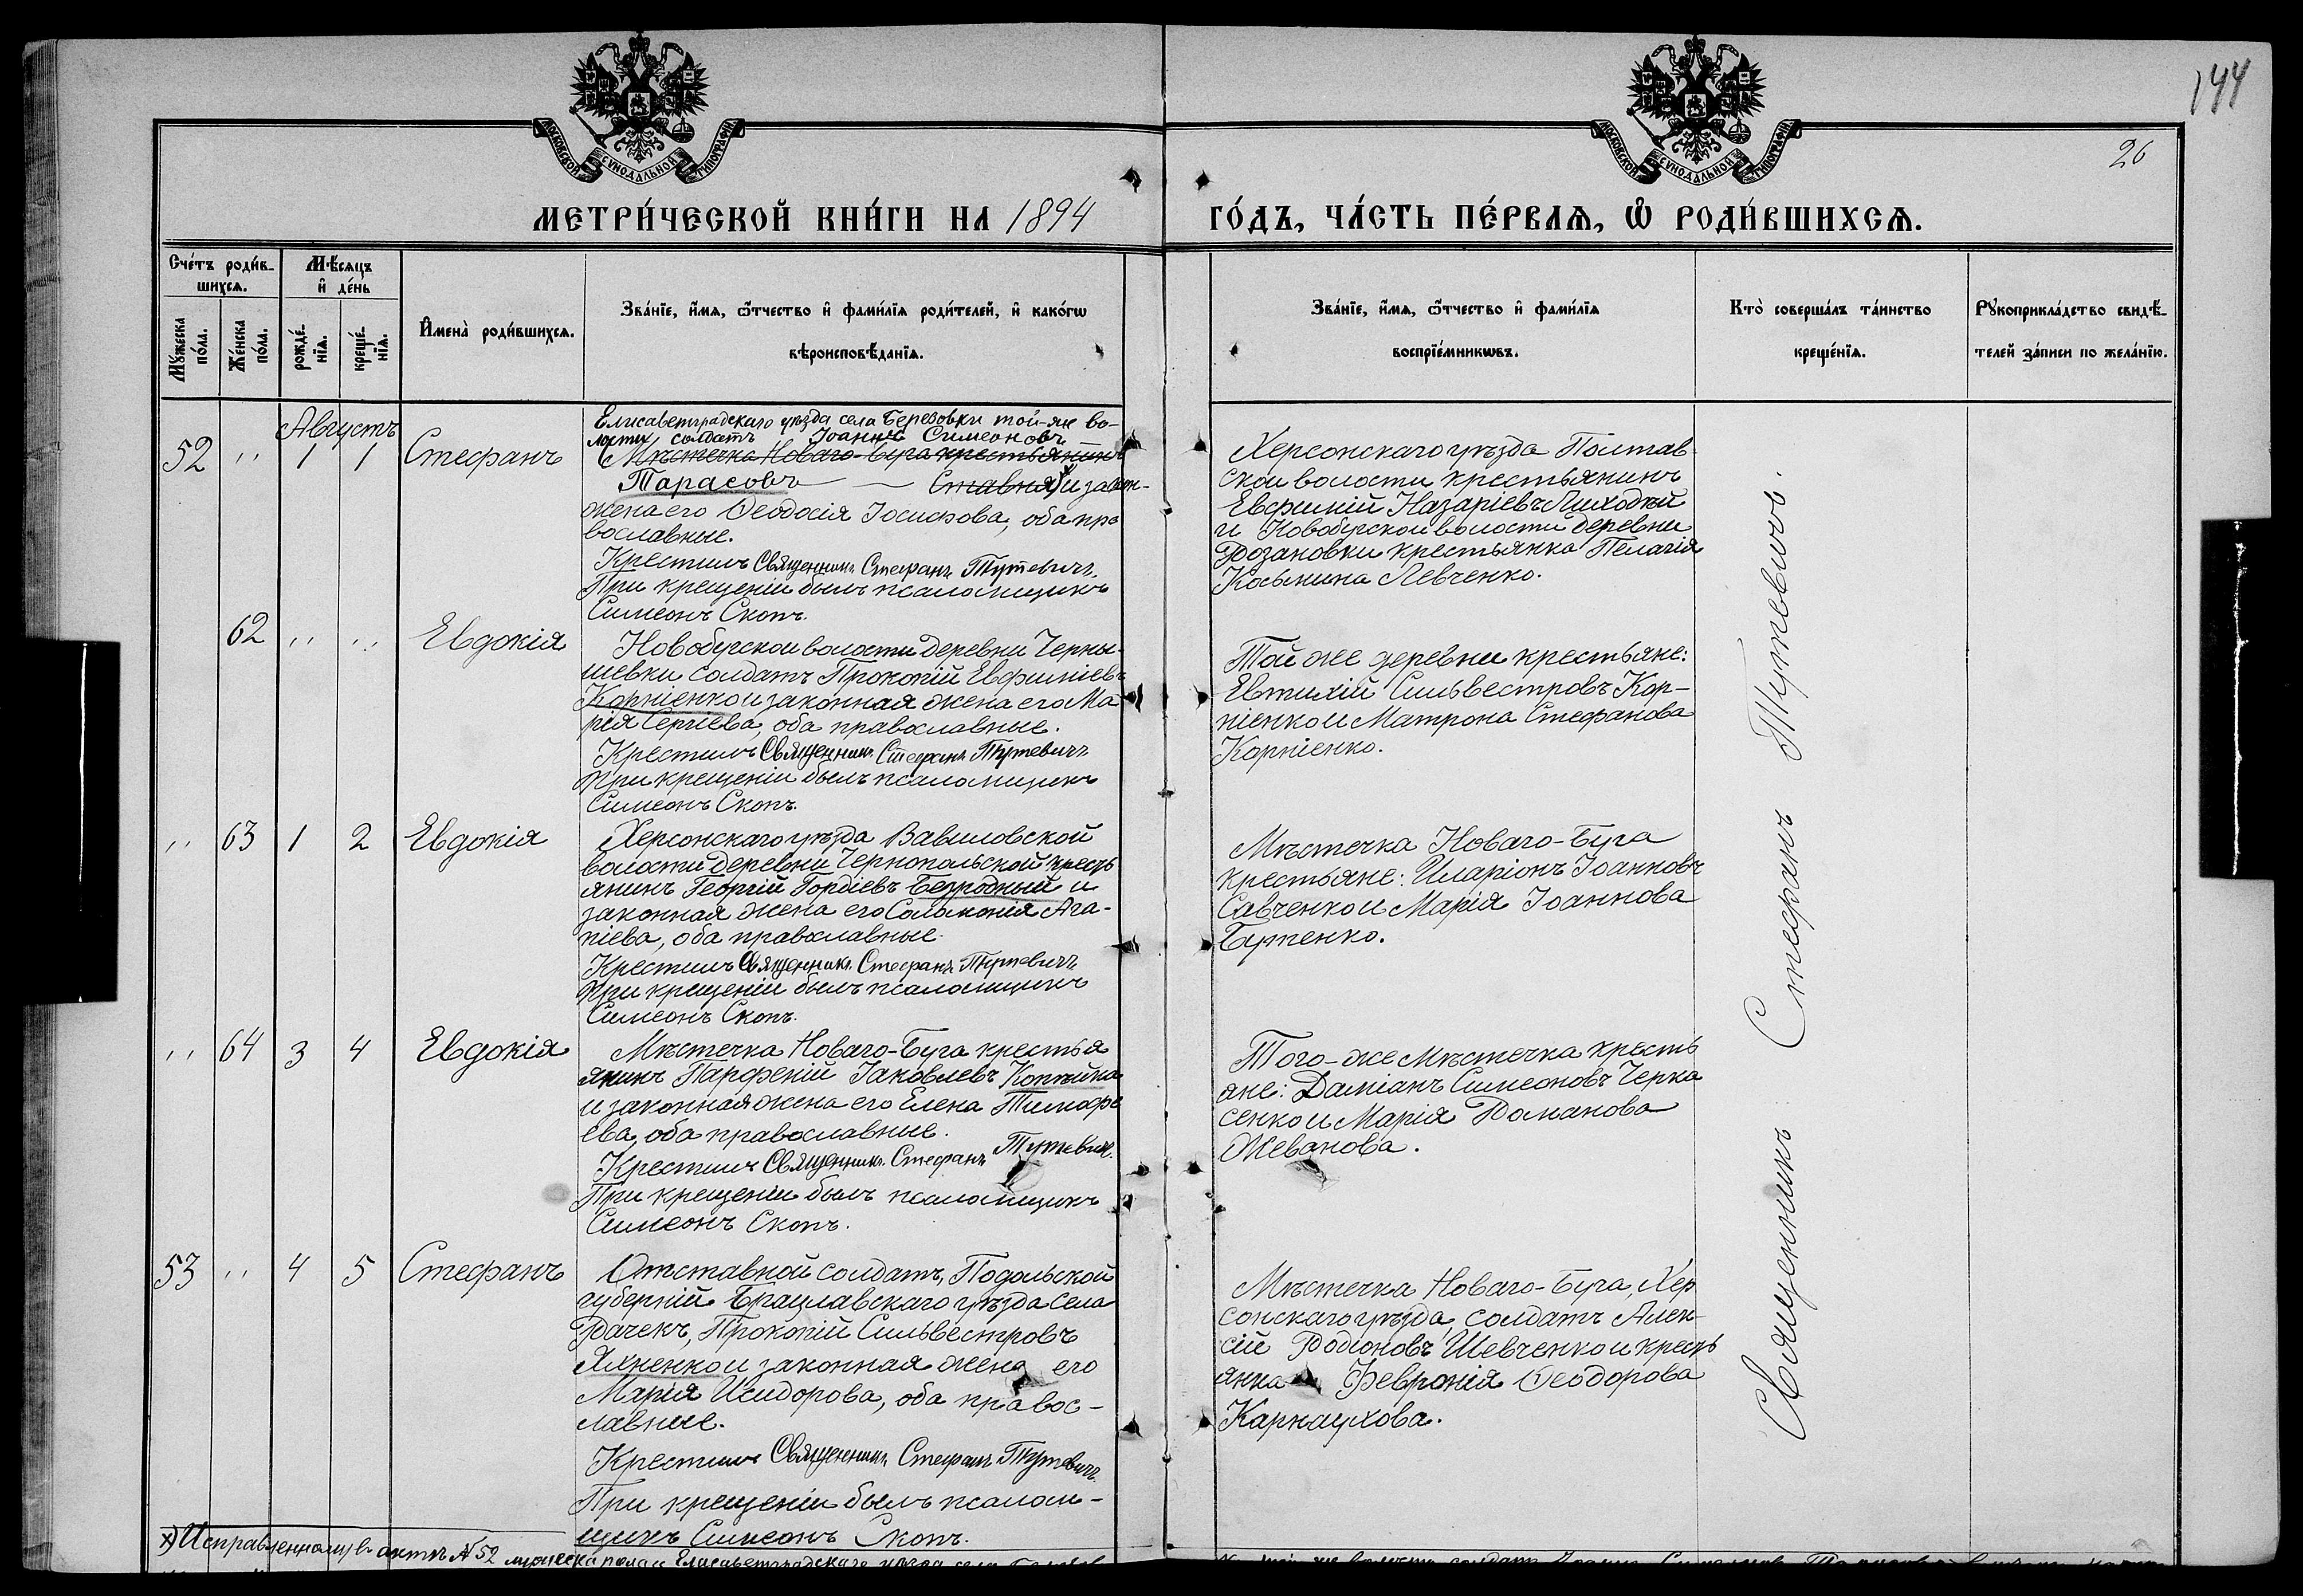 144
26
МОСКОВСКОЙ СѴНОДАЛЬНОЙ ТИПОГРАФІИ
МОСКОВСКОЙ СѴНОДАЛЬНОЙ ТИПОГРАФІИ
МЕТРИ́ЧЕСКОЙ КНИ́ГИ НА 1894
ГО́ДЪ, ЧА́СТЬ ПЕ́РВАѦ, Ѡ҆ РОДИ́ВШИХСѦ.
Сче́тъ роди́в-
шихсѧ.
Мꙋ́жеска по́ла.
Же́нска по́ла.
Мѣ́сѧцъ
и҆ де́нь
рожде́-нїѧ.
креще́-нїѧ.
И҆мена̀ роди́вшихсѧ.
Зва́нїе, и҆́мѧ, ѻ҆́тчество и҆ фами́лїѧ роди́телей, и҆ како́гѡ
вѣроисповѣ́данїѧ.
Зва́нїе, и҆́мѧ, ѻ҆́тчество и҆ фами́лїѧ
воспрїе́мникѡвъ.
Кто̀ соверша́лъ та́инство
креще́нїѧ.
Рꙋкоприкла́дство свидѣ́-
телей за́писи по жела́нїю.
Августъ
52 " 1 1 Стефанъ
Елисаветградскаго уѣзда села Березовки той-же во-
лости солдатъ Іоаннъ Симеоновъ
Мѣстечка Новаго-Буга крестьянинъ
Тарасовъ — Ставня х) и закон-
жена его Ѳеодосія Іосифова, оба пра
вославные.
Крестилъ Священникъ Стефанъ Тутевичъ
При крещеніи былъ псаломщикъ
Симеонъ Скопъ.
Херсонскаго уѣзда Полтав
ской волости крестьянинъ
Евфимій Назаріевъ Лиходѣй
и Новобугской волости деревни
Розановки крестьянка Пелагія
Косьмина Левченко.
62 " " Евдокія
Новобугской волости деревни Черны-
шевки солдатъ Прокопій Евфиміевъ
Корніенко и законная жена его Ма
рія Сергіева, оба православные.
Крестилъ Священникъ Стефанъ Тутевичъ
При крещеніи былъ псаломщикъ
Симеонъ Скопъ.
Той же деревни крестьяне:
Евтихій Сильвестровъ Кор-
ніенко и Матрона Стефанова
Корніенко.
" 63 1 2 Евдокія
Херсонскаго уѣзда Вавиловской
волости деревни Чернопольской кресть
янинъ Георгій Гордіевъ Безродный и
законная жена его Соломонія Ага-
піева, оба православные.
Крестилъ Священникъ Стефанъ Тутевичъ
При крещеніи былъ псаломщикъ
Симеонъ Скопъ.
Мѣстечка Новаго-Буга
крестьяне: Иларіонъ Іоанновъ
Савченко и Марія Іоаннова
Бутенко.
" 64 3 4 Евдокія
Мѣстечка Новаго-Буга крестья
янинъ Парфеній Іаковлевъ Копѣйка
и законная жена его Елена Тимофе
ева, оба православные.
Крестилъ Священникъ Стефанъ Тутевичъ.
При крещеніи былъ псаломщикъ
Симеонъ Скопъ.
Того-же Мѣстечка кресть
яне: Даміанъ Симеоновъ Черка
сенко и Марія Романова
Жеванова.
53 " 4 5 Стефанъ
Отставной солдатъ, Подольской
губерніи Брацлавскаго уѣзда села
Рачекъ, Прокопій Сильвестровъ
Яхненко и законная жена его
Марія Исидорова, оба правос-
лавные.
Крестилъ Священникъ Стефанъ Тутевичъ.
При крещеніи былъ псалом-
щикъ Симеонъ Скопъ.
Мѣстечка Новаго-Буга, Хер
сонскаго уѣзда, солдатъ Алек-
сій Родіоновъ Шевченко и кресть
янка Февронія Ѳеодорова
Карнаухова.
Священникъ Стефанъ Тутевичъ.
х) Исправленному въ актѣ № 52 мужеска пола: Елисаветградскаго уѣзда села
той же волости солдатъ Іоаннъ Симеоновъ Тарасовъ